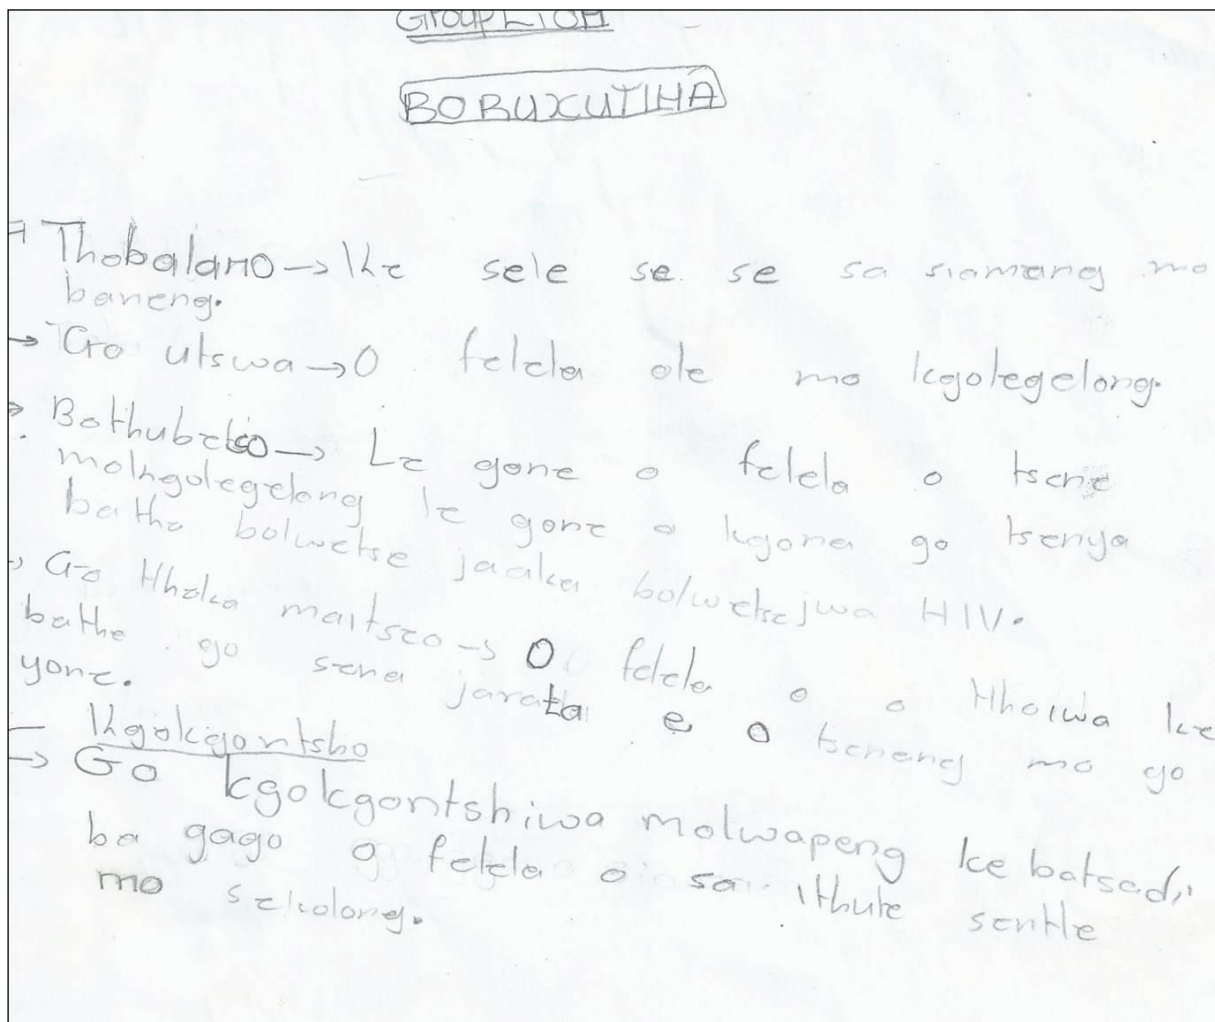 Group Lion
BOBUXUTIHA
→ Thobalano → Ke sele se se sa siamang mo
baneng.
→ Go utswa → O felela ole mo kgolegelong.
→ Bothubetso → Le gone o felela o tsene
mokgolegelong le gone o kgona go tsenya
batho bolwetse jaaka bolwetse jwa HIV.
→ Go tlhoka maitseo → O felela o o tlhoiwa ke
bathe go sena jarata e o tseneng mo go
yone.
— Kgokgontsho
→ Go kgokgontshiwa molwapeng ke batsadi
ba gago o felela o sa ithute sentle
mo sekolong.